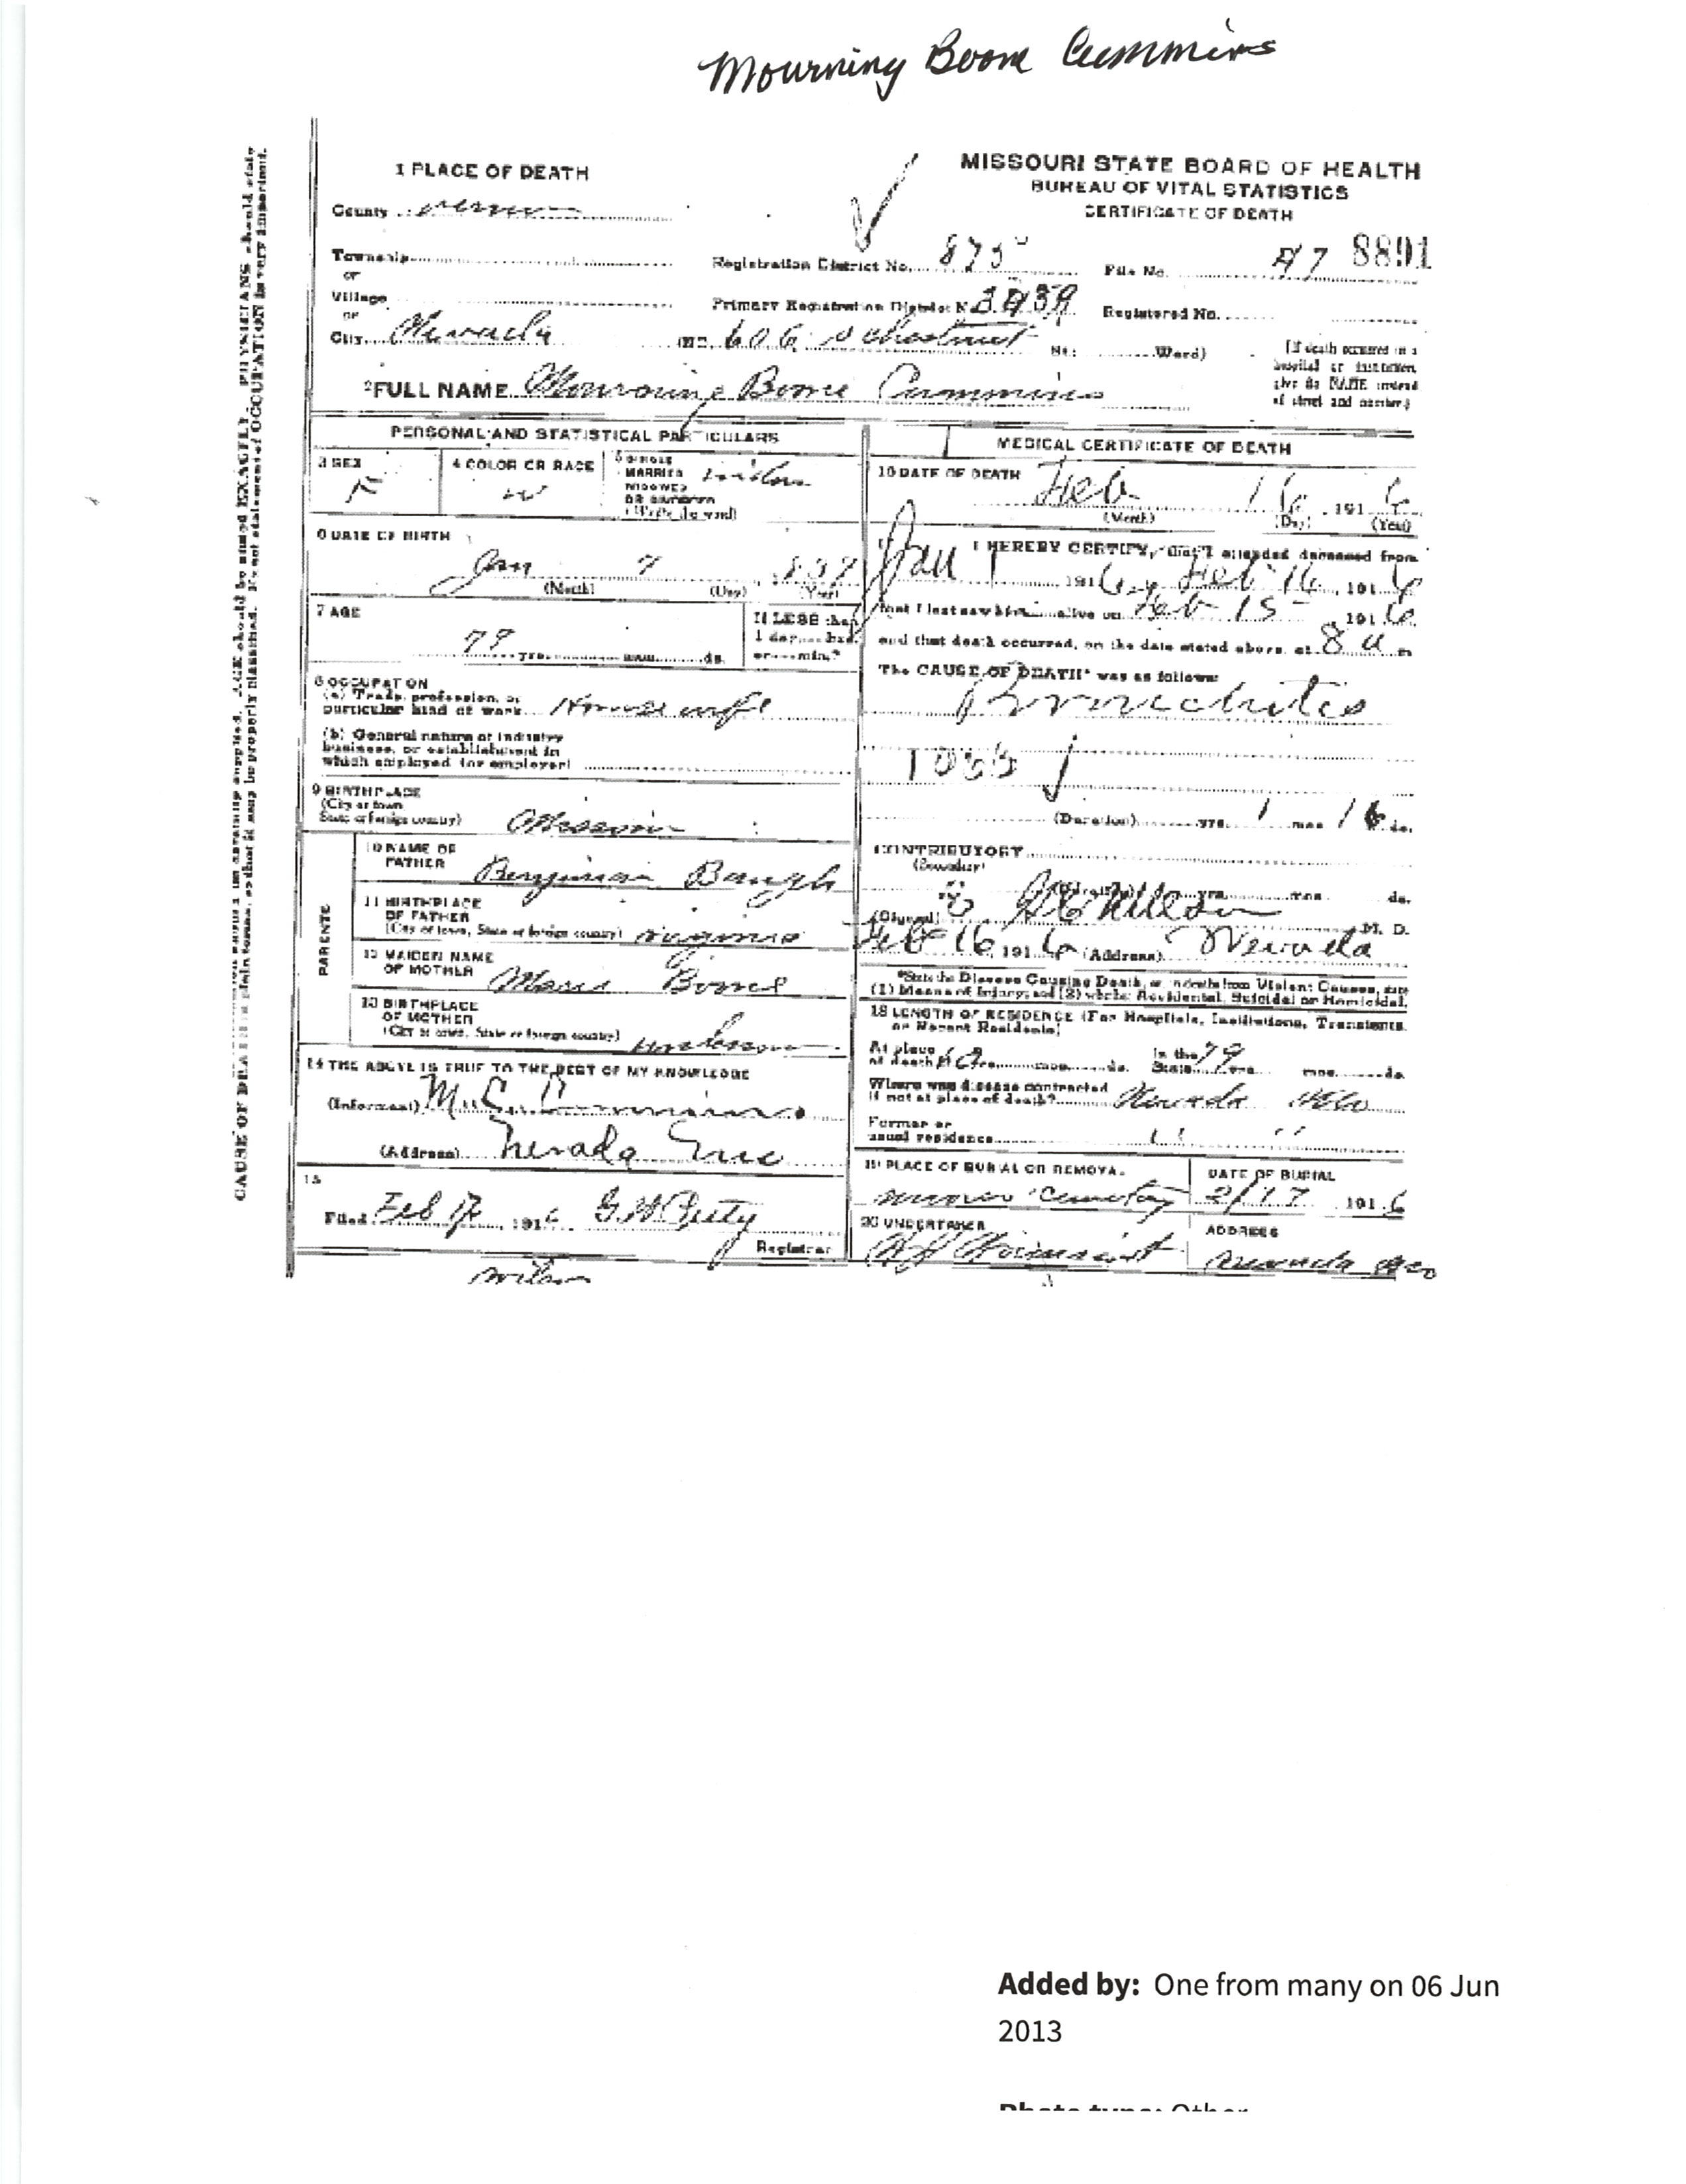 Mourning Boone Cummins
1 PLACE OF DEATH
County Vernon
Township
or
Village
or
City Nevada (No. 606 S Chestnut St; Ward)
MISSOURI STATE BOARD OF HEALTH
BUREAU OF VITAL STATISTICS
CERTIFICATE OF DEATH
Registration District No. 875 File No. 8891
Primary Registration District No. 3039 Registered No.
[If death occurred in a
hospital or institution,
give its NAME instead
of street and number.]
2 FULL NAME Mourning Boone Cummins
PERSONAL AND STATISTICAL PARTICULARS
3 SEX F
4 COLOR OR RACE W
5 SINGLE
MARRIED
WIDOWED
OR DIVORCED
(Write the word)
Widow
6 DATE OF BIRTH
Jan 7 1837
(Month) (Day) (Year)
7 AGE
79 yrs. mos. ds.
If LESS than
1 day, hrs.
or min.?
8 OCCUPATION
(a) Trade, profession, or
particular kind of work Housewife
(b) General nature of industry
business, or establishment in
which employed (or employer)
9 BIRTHPLACE
(City or town
State or foreign country) Missouri
PARENTS
10 NAME OF
FATHER Benjiman Baugh
11 BIRTHPLACE
OF FATHER
(City or town, State or foreign country) Virginia
12 MAIDEN NAME
OF MOTHER Boone
13 BIRTHPLACE
OF MOTHER
(City or town, State or foreign country) unknown
14 THE ABOVE IS TRUE TO THE BEST OF MY KNOWLEDGE
(Informant) Cummins
(Address) Nevada Mo
15
Filed Feb 17, 1916 Registrar
MEDICAL CERTIFICATE OF DEATH
16 DATE OF DEATH Feb 16 1916
(Month) (Day) (Year)
I HEREBY CERTIFY, that I attended deceased from
Jan 1 1916, Feb 16, 1916
that I last saw h alive on Feb 15 1916
and that death occurred, on the date stated above, at 8 a m
The CAUSE OF DEATH* was as follows:
Bronchitis
(Duration) yrs. 1 mos 16 ds.
CONTRIBUTORY
(Secondary)
(Duration) yrs. mos. ds.
(Signed) M. D.
Feb 16, 1916 (Address) Nevada
*State the Disease Causing Death, or, in deaths from Violent Causes, state
(1) Means of Injury; and (2) whether Accidental, Suicidal or Homicidal.
18 LENGTH OF RESIDENCE (For Hospitals, Institutions, Transients,
or Recent Residents)
At place
of death yrs. mos. ds. In the State 79 yrs. mos. ds.
Where was disease contracted
if not at place of death? Nevada Mo
Former or
usual residence " "
19 PLACE OF BURIAL OR REMOVAL DATE OF BURIAL
Cemetery 2/17 1916
20 UNDERTAKER ADDRESS
Nevada Mo
Added by: One from many on 06 Jun
2013
Photo type: Other